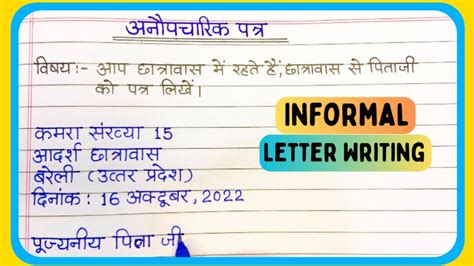 अनौपचारिक पत्र
विषय:- आप छात्रावास में रहते हैं, छात्रावास से पिताजी
को पत्र लिखें।
INFORMAL
LETTER WRITING
कमरा संख्या 15
आदर्श छात्रावास
बरेली (उत्तर प्रदेश)
दिनांक: 16 अक्टूबर, 2022
पूज्यनीय पिता जी